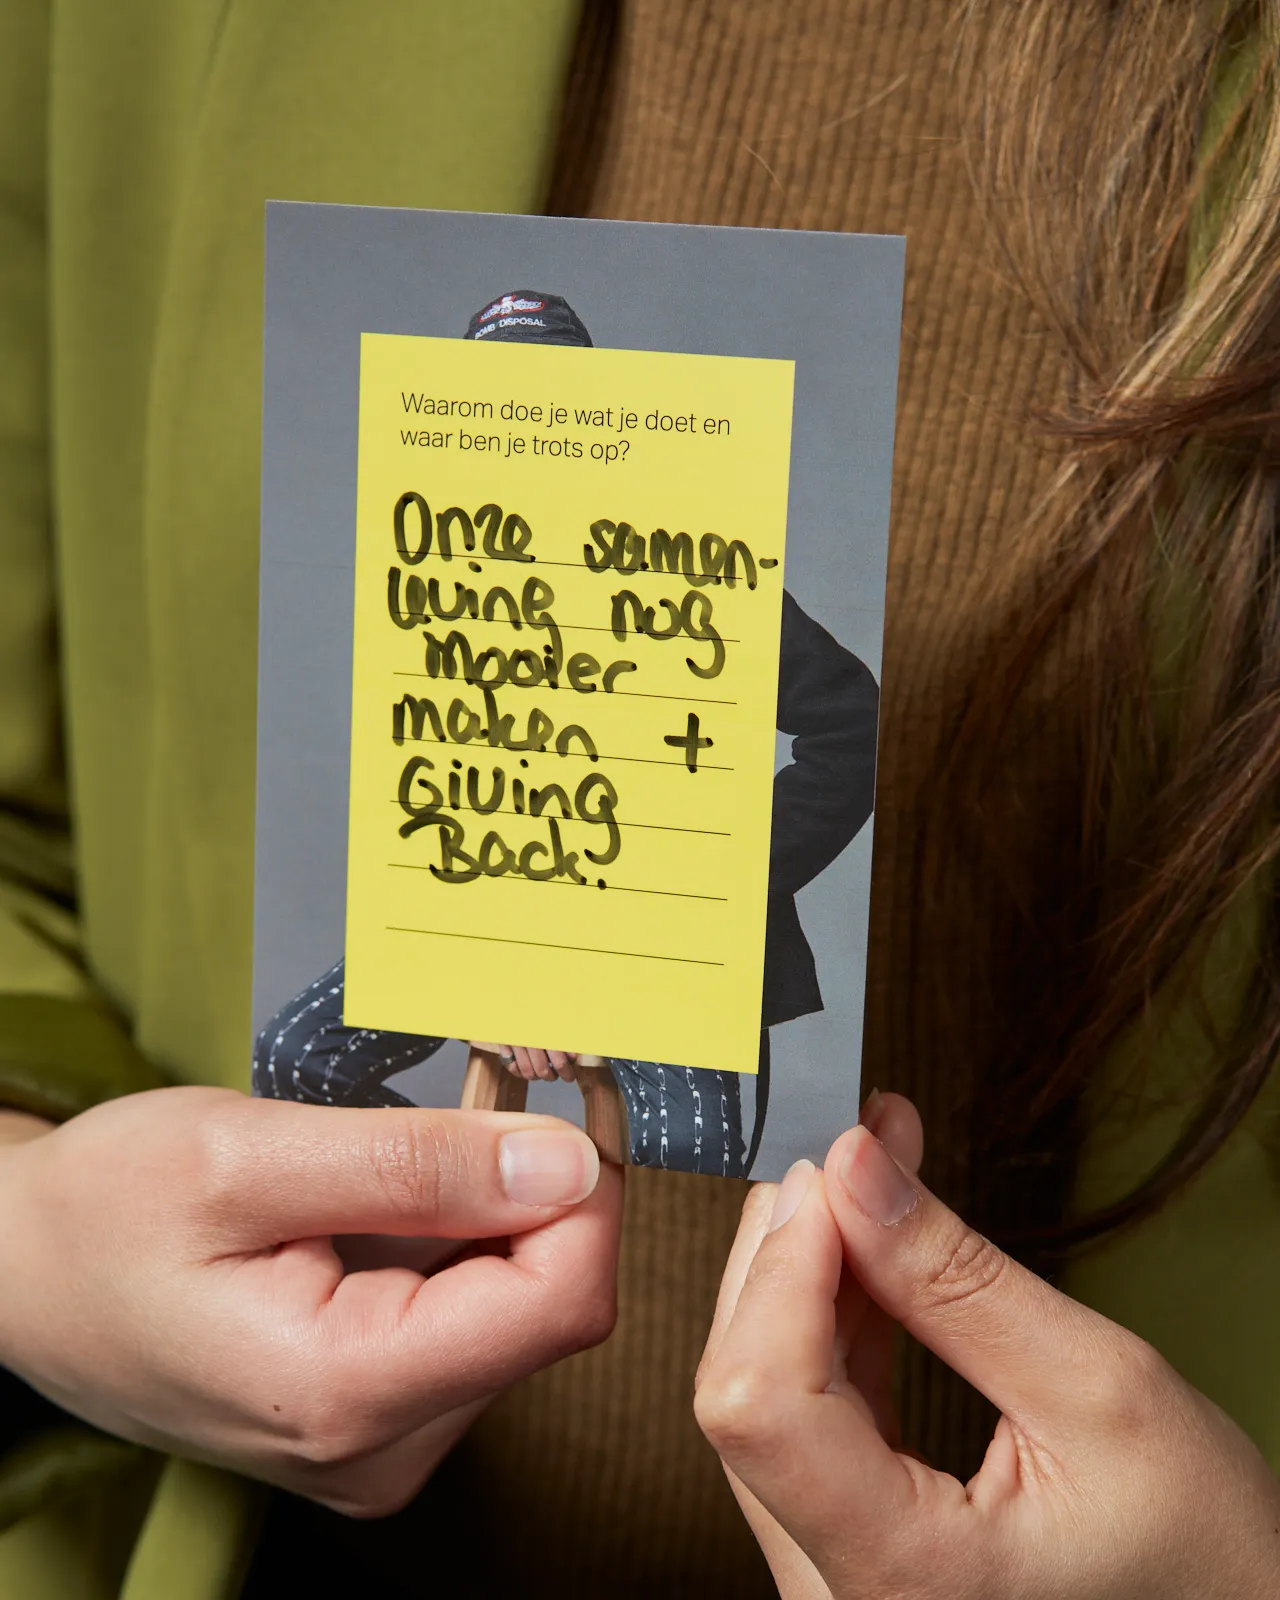 BOMB DISPOSAL
Waarom doe je wat je doet en
waar ben je trots op?
Onze samen-
leving nog
mooier
maken +
Giving
Back.